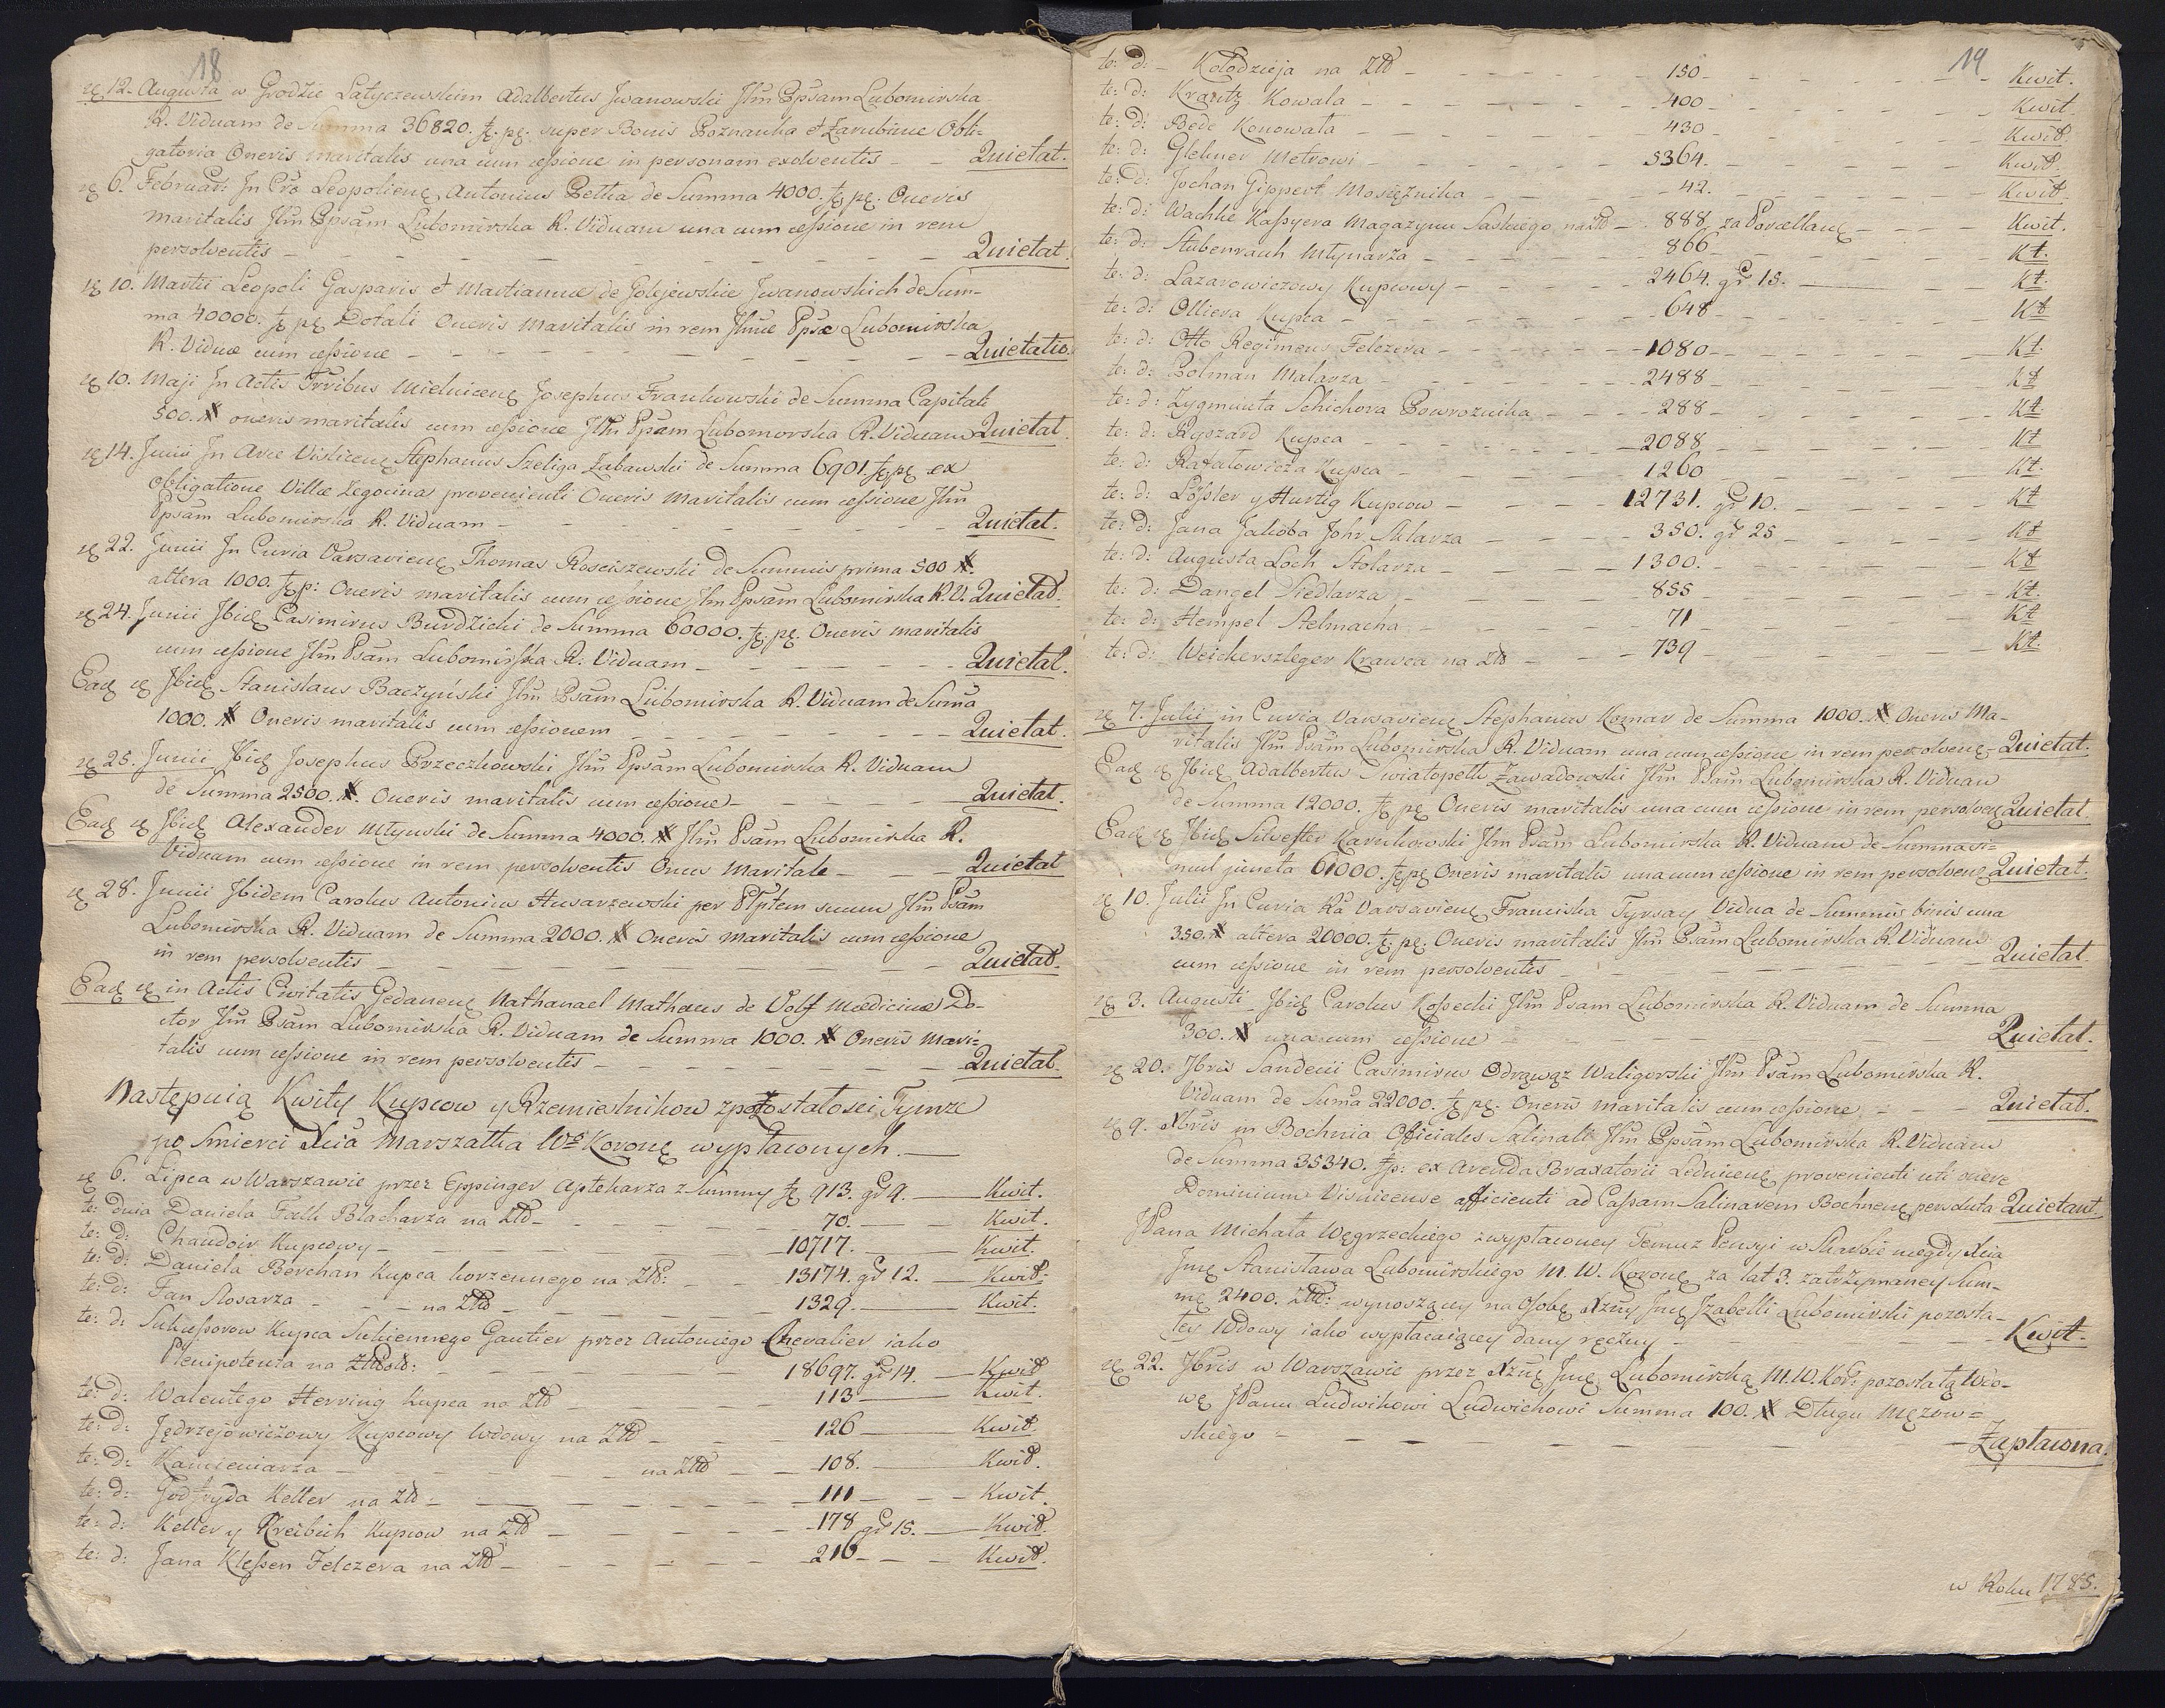 18
12. Augusta w Grodzie Latyczewskim Adalbertus Jwanowski Jllm Ppsam Lubomirska
R. Viduam de Summa 36820. fl. pl. super Bonis Poznanka et Zarubince Obli-
gatoria Oneris maritalis una cum cessione in personam exolventis – – Quietat.
6. Februar: Jn Cro Leopoliens Antonius Bełka de Summa 4000. fl. pl. Oneris
maritalis Jllm Ppsam Lubomirska R. Viduam una cum cessione in rem
persolventis – – Quietat.
10. Martii Leopoli Gasparis et Martianne de Golejewskie Jwanowskich de Sum-
ma 40000. fl. pl. Dotali Oneris maritalis in rem Jllme Ppsæ Lubomirska
R. Viduæ cum cessione – – Quietatio.
10. Maji Jn Actis Trribus Mielnicens Josephus Frankowski de Summa Capitali
500. # oneris maritalis cum cessione Jllm Ppsam Lubomorska R. Viduam Quietat.
14. Junii Jn Arce Vislicens Stephanus Szeliga Zabawski de Summa 6901. fl. pl. ex
obligatione Villæ Zegocina provenienti Oneris maritalis cum cessione Jllm
Ppsam Lubomirska R. Viduam – – Quietat.
22. Junii Jn Curia Varsaviens Thomas Rosciszewski de Summis prima 500 #.
altera 1000. fl. p: Oneris maritalis cum cessione Jllm Ppsam Lubomirska R. V. Quietat.
24. Junii Jbid Casimirus Burdzicki de Summa 60000. fl. pl. Oneris maritalis
cum cessione Jllm Psam Lubomirska R. Viduam – – Quietat.
Ead Jbid Stanislaus Baczyński Jllm Psam Lubomirska R. Viduam de Suma
1000. # Oneris maritalis cum cessionem – – Quietat.
25. Junii Jbid Josephus Brzeczkowski Jllm Ppsam Lubomirska R. Viduam
de Summa 2500. #. Oneris maritalis cum cessione – – Quietat.
Ead Jbid Alexander Młynski de Summa 4000. # Jllm Psam Lubomirska R.
Viduam cum cessione in rem persolventis Onus maritale – – Quietat
28. Junii Jbidem Carolus Antonius Husarzewski per Plptem suum Jllm Psam
Lubomirska R. Viduam de Summa 2000. # Oneris maritalis cum cessione
in rem persolventis – – Quietat.
Ead in Actis Civitatis Gedanens Nathanael Mathæus de Volf Medicinæ Do-
ctor Jllm Psam Lubomirska R. Viduam de Summa 1000. # Oneris mari-
talis cum cessione in rem persolventis – – Quietat.
Następuią Kwity Kupcow y Rzemieslnikow z pozostałosci Tymze
po Smierci Xcia Marszałka Wo Koronę wypłaconych. –
6. Lipca w Warszawie przez Eppinger Aptekarza z Summy fl 913. gr 9. – Kwit.
te: dnia Daniela Falk Blacharza na Złt – – 70. – Kwit.
te: d: Chaudoir Kupcowy – – 10717. – Kwit.
te: d: Daniela Berchan Kupca korzennego na Złt: – – 13174. gr 12. – Kwit.
te: d: Fan Slosarza – – na Złt – – 1329. – Kwit.
te: d: Sukcessorow Kupca Sukiennego Gautier przez Antoniego Chevalier iako
Plenipotenta na Złt: – – 18697. gr 14. – Kwit
te: d: Walentego Herring Kupca na Złt – – 113 – Kwit.
te: d: Jędrzejowiczowy Kupcowy Wdowy na Złt – – 126 – Kwit.
te: d: Kamieniarza – – na Złt – – 108. – Kwit.
te: d: Godfryda Keller na Złt – – 111 – – Kwit.
te: d: Keller y Kreibich Kupcow na Złt – – 178 gr 15. – Kwit.
te: d: Jana Klessen Felczera na Złt – – 216 – – Kwit.
19
te: d: – Kołodzieja na Złt – – 150 – – Kwit.
te: d: Krantz Kowala – – 400 – – Kwit.
te: d: Bede Konowała – – 430 – – Kwit.
te: d: Glebner Metrowi – – 5364. – – Kwit.
te: d: Jochan Gippert Mosiężnika – – 42. – – Kwit.
te: d: Wachke Kassyera Magazynu Saskiego na Złt – 888 za Porcellanę – – Kwit.
te: d: Stubenrauch Młynarza – – 866 – – Kt.
te: d: Lazarowiczowy Kupcowy – – 2464. gr 15. – Kt.
te: d: Olliera Kupca – – 648 – – Kt
te: d: Otto Regimens Felczera – – 1080 – – Kt.
te: d: Bolman Malarza – – 2488 – – Kt
te: d: Zygmunta Schichora Powroznika – – 288 – – Kt.
te: d: Ryszard Kupca – – 2088 – – Kt
te: d: Rafałowicza Kupca – – 1260 – – Kt.
te: d: Lössler y Hurtig Kupcow – – 12731. gr 10. – – Kt
te: d: Jana Jakoba Johr Sklarza – – 350. gr 25 – – Kt
te: d: Augusta Loch Stolarza – – 1300. – – Kt
te: d: Dangel Siedlarza – – 855 – – Kt.
te: d: Hempel Stelmacha – – 71 – – Kt
te: d: Weicherszleger Krawca na Złt – – 739 – – Kt.
7. Julii in Curia Varsaviens Stephanus Komar de Summa 1000. # Oneris Ma-
ritalis Jllm Psam Lubomirska R. Viduam una cum cessione in rem persolvens – Quietat.
Ead Jbid Adalbertus Swiatopełk Zawadowski Jllm Psam Lubomirska R. Viduam
de Summa 12000. fl. pl. Oneris maritalis una cum cessione in rem persolvens Quietat.
Ead Jbid Silvester Karnkowski Jllm Psam Lubomirska R. Viduam de Summa si-
mul juncta 61000. fl. pl. Oneris maritalis una cum cessione in rem persolvens Quietat.
10. Julii Jn Curia Ra Varsaviens Franciska Tyrsay Vidua de Summis binis una
350. # altera 20000. fl. pl. Oneris maritalis Jllm Psam Lubomirska R. Viduam
cum cessione in rem persolventis – – Quietat.
3. Augusti Jbid Carolus Kossecki Jllm Psam Lubomirska R. Viduam de Summa
300. # una cum cessione – – Quietat.
20. Jbris Sandecii Casimirus Odrąwąz Waligorski Jllm Psam Lubomirska R.
Viduam de Suma 22000. fl. pl. Oneris maritalis cum cessione – – Quietat.
9. Xbris in Bochnia Officiales Salinali Jllm Ppsam Lubomirska R. Viduam
de Summa 35340. fl. p: ex Arenda Braxatorii Lednicens provenienti uti onere
Dominium Visnicense afficienti ad Cassam Salinarem Bochnens persoluta Quietant.
JPana Michała Węgrzeckiego z wypłaconey Temuz Pensyi w Skarbie niegdy Xcia
Jmę Stanisława Lubomirskiego M. W. Koronę za lat 3. zatrzymaney Sum-
mę 2400. Złt: wynoszącey na Osobę Xzny Jmę Jzabelli Lubomirski pozosta-
łey Wdowy iako wypłacaiącey dany ręczny – – Kwit.
22. Jbris w Warszawie przez Xznę Jmę Lubomirską M. W. Kor: pozostałą Wdo-
wę JPanu Ludwikowi Ludwichowi Summa 100. # Długu Męzow-
skiego – – Zapłacona.
w Roku 1785.